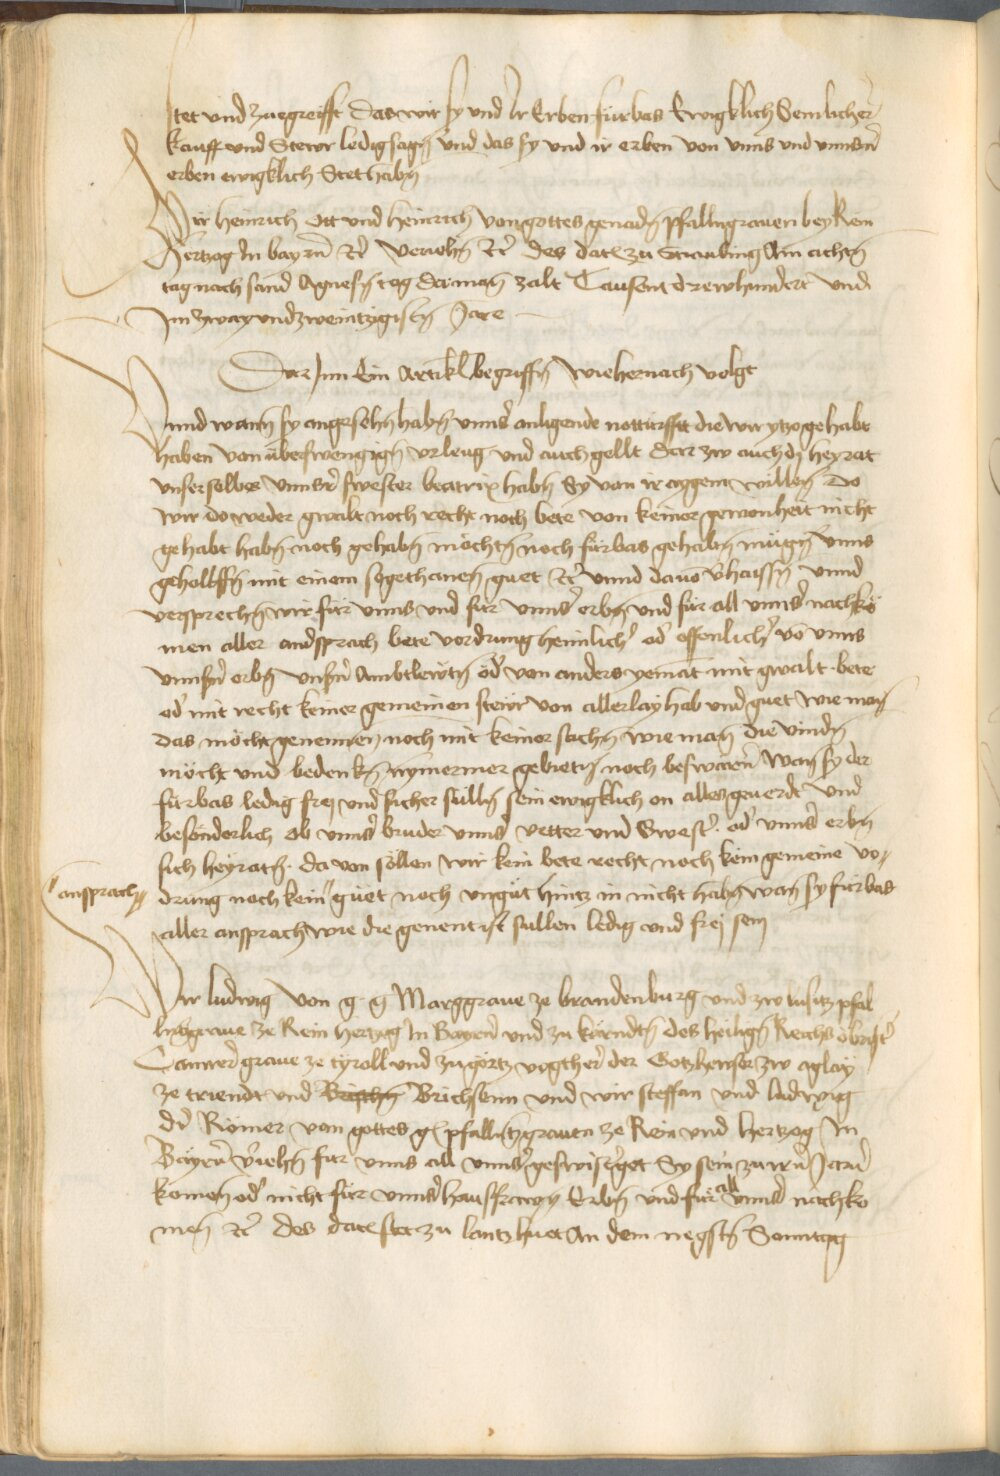 stet und zuegreifft das wir sy und Ir Erben fürbas Ewigklich Semlicher
kauff und Stewr ledig sagn̄ und das sy und ir erben von unns und unnsn̄
erben ewigklich Stet habn̄
Wir heinrich Ott und heinrich von gottes genadn̄ Pfallnzgraven bey Rein
Hertzog In bayrn̄ ꝛc̄ veriehn̄ ꝛc̄ des dat͛ zu Straubing Am achtn̄
tag nach sand Agnesn̄ tag Do man̄ zalt Tausent drewhundert und
Im zway und zweintzigistn̄ Jare
Dar Inn Ein Artikl begriffn̄ wie hernach volgt
Unnd wann̄ sy angesehn̄ habn̄ unns͛ anligende notturfft die wir ytzo gehabt
haben von übeswengign̄ urleug und auch gellt dar zw auch dy heyrat
unser selbes unnser͛ swester beatrix habn̄ Sy von ir aygem willen Do
wir do weder gwalt noch recht noch bete von keiner gewonheit nicht
gehabt habn̄ noch gehabn̄ möchtn̄ noch fürbas gehabn̄ mügn̄ unns
geholffn̄ mit einem sogethanen guet ꝛc̄ unnd davō v͛haissn̄ unnd
versprechn̄ wir für unns und für unns͛ erbn̄ und für all unns͛ nachkō
men aller andsprach bete vordrung heimlich͛ od͛ offenlich͛ vō unns
unnsn̄ erbn̄ unsn̄ Ambtlewtn̄ od͛ von anders yemāt mit gwalt bete
od͛ mit recht keiner gemeinen stewr von allerlay hab und guet wie man̄
das möcht genennen noch mit keiner sachn̄ wie man̄ die vindn̄
möcht und bedenkn̄ nymermer gebietn̄ noch beswärn̄ wan̄ sy der
fürbas ledig frej und sicher sülln̄ sein ewigklich on alles geverdt und
besönderlich ob unns͛ bruder unns͛ vetter und Swest͛ od͛ unns͛ erbn̄
sich heyratn̄ da von söllen wir kein bete recht noch kein gemeine vo
ansprach
drung noch kein guet noch ungüt hintz in nicht habn̄ wan̄ sy fürbas
aller ansprach wie die genent ist sullen ledig und frej sein
Wir ludwig von g g Marggrave ze brandenburg und zw lusitz pfal
lntzgrave ze Rein hertzog In Bayrn̄ und zu kärndtn̄ des heilign̄ Reichs öbrist͛
Camrer grave ze tyroll und zu görtz vogther͛ der Gotzhewser zw aglay
ze triendt und Brichsenn und wir steffan und ludwig
d͛ Römer von gottes g pfallntzgraven ze Rein und hertzog In
Bayrn̄ v͛iehn̄ für unns all unns͛ geswist͛get Sy sein zu irn̄ Jarn̄
komen̄ od͛ nicht für unns͛ hausfrawn̄ Erbn̄ und für all unns͛ nachko
men̄ ꝛc̄ des dat͛ stet zu lantzhuet An dem negstn̄ Sonntag